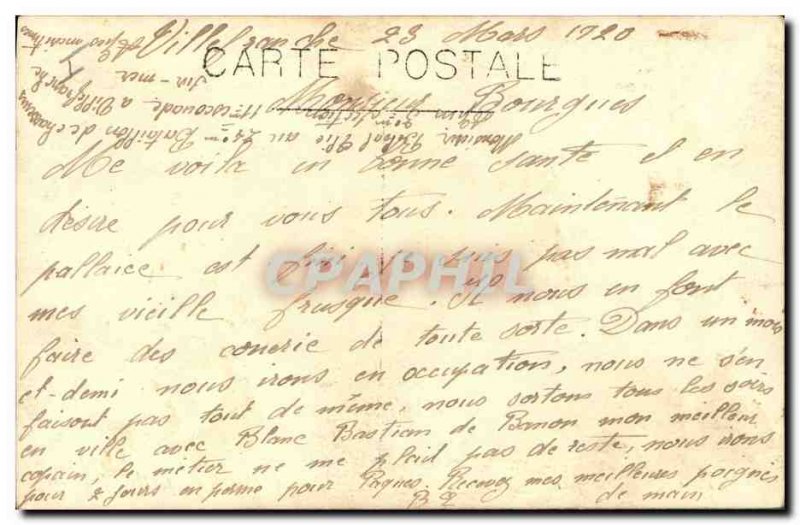 Villefranche 23 Mars 1920
CARTE POSTALE
Monsieur Bourgues
Me voila en bonne santé et en
désire pour vous tous. Maintenant le
pallaice est fini je suis pas mal avec
mes vieille frusque. Ils nous en font
faire des couerie de toute sorte. Dans un mois
et-demi nous irons en occupation, nous ne s'en
faisont pas tout de même, nous sortons tous les soirs
en ville avec Blanc Bastian de Banon mon meilleur
copain, le métier ne me plait pas de reste, nous irons
pour 2 jours en perme pour Paques. Recevez mes meilleures poignés
de main
B E
Monsieur Elie au 25ème Bataillon de chasseurs
11me escouade à Villefranche
sur-mer
Alpes maritimes
CPAPHIL